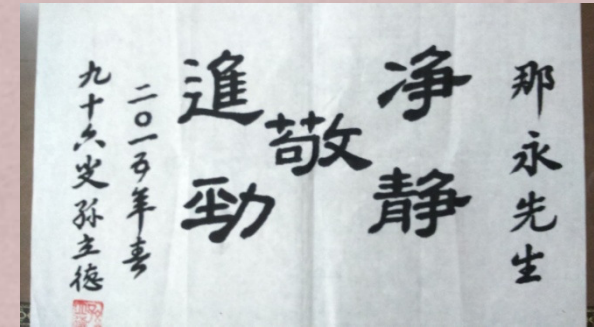 那永先生
净静
敬
進勁
二〇一五年春
九十六叟孙立德